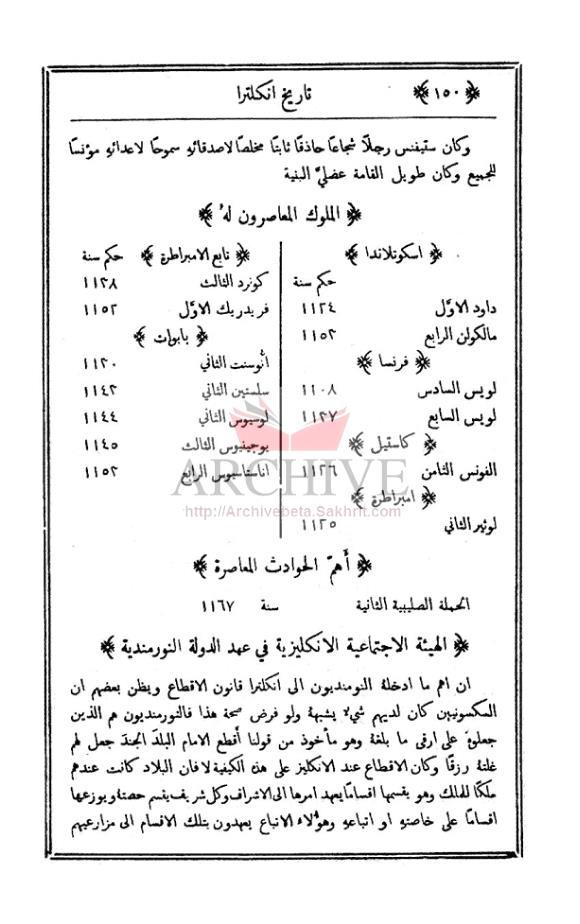 ﴿١٥٠﴾ تاريخ انكلترا
وكان ستيفنس رجلًا شجاعًا حاذقًا ثابتًا مخلصًا لاصدقائهِ سموحًا لاعدائهِ مؤنسًا
للجميع وكان طويل القامة عضليَّ البنية
﴿ الملوك المعاصرون لهُ ﴾
﴿ اسكوتلاندا ﴾
حكم سنة
داود الاوَّل ١١٢٤
مالكولن الرابع ١١٥٣
﴿ فرنسا ﴾
لويس السادس ١١٠٨
لويس السابع ١١٣٧
﴿ كاستيل ﴾
الفونس الثامن ١١٢٦
﴿ امبراطرة ﴾
لوثير الثاني ١١٢٥
﴿ تابع الامبراطرة ﴾ حكم سنة
كونرد الثالث ١١٣٨
فريدريك الاوَّل ١١٥٢
﴿ بابوات ﴾
اَنُوسنت الثاني ١١٣٠
سلستين الثاني ١١٤٣
لوسيوس الثاني ١١٤٤
يوجينيوس الثالث ١١٤٥
اناستاسيوس الرابع ١١٥٣
ARCHIVE
http://Archivebeta.Sakhrit.com
﴿ أهمّ الحوادث المعاصرة ﴾
الحملة الصليبية الثانية سنة ١١٦٧
﴿ الهيئة الاجتماعية الانكليزية في عهد الدولة النورمندية ﴾
ان اهم ما ادخلهُ النومنديون الى انكلترا قانون الاقطاع ويظن بعضهم ان
المكسونيين كان لديهم شيءٌ يشبههُ ولو فرض صحة هذا فالنورمنديون هم الذين
جعلوهُ على ارقى ما بلغهُ وهو مأخوذ من قولنا أقطع الامام البلدَ الجندَ جعل لهم
غلتهُ رزقًا وكان الاقطاع عند الانكليز على هذه الكيفية لا فان البلاد كانت عندهم
ملكًا للملك وهو يقسمها اقسامًا يعهد امرها الى الاشراف وكل شريف يقسم حصتهُ ويوزعها
اقسامًا على خاصتهِ او اتباعهِ وهؤُلاء الاتباع يعهدون بتلك الاقسام الى مزارعيهم